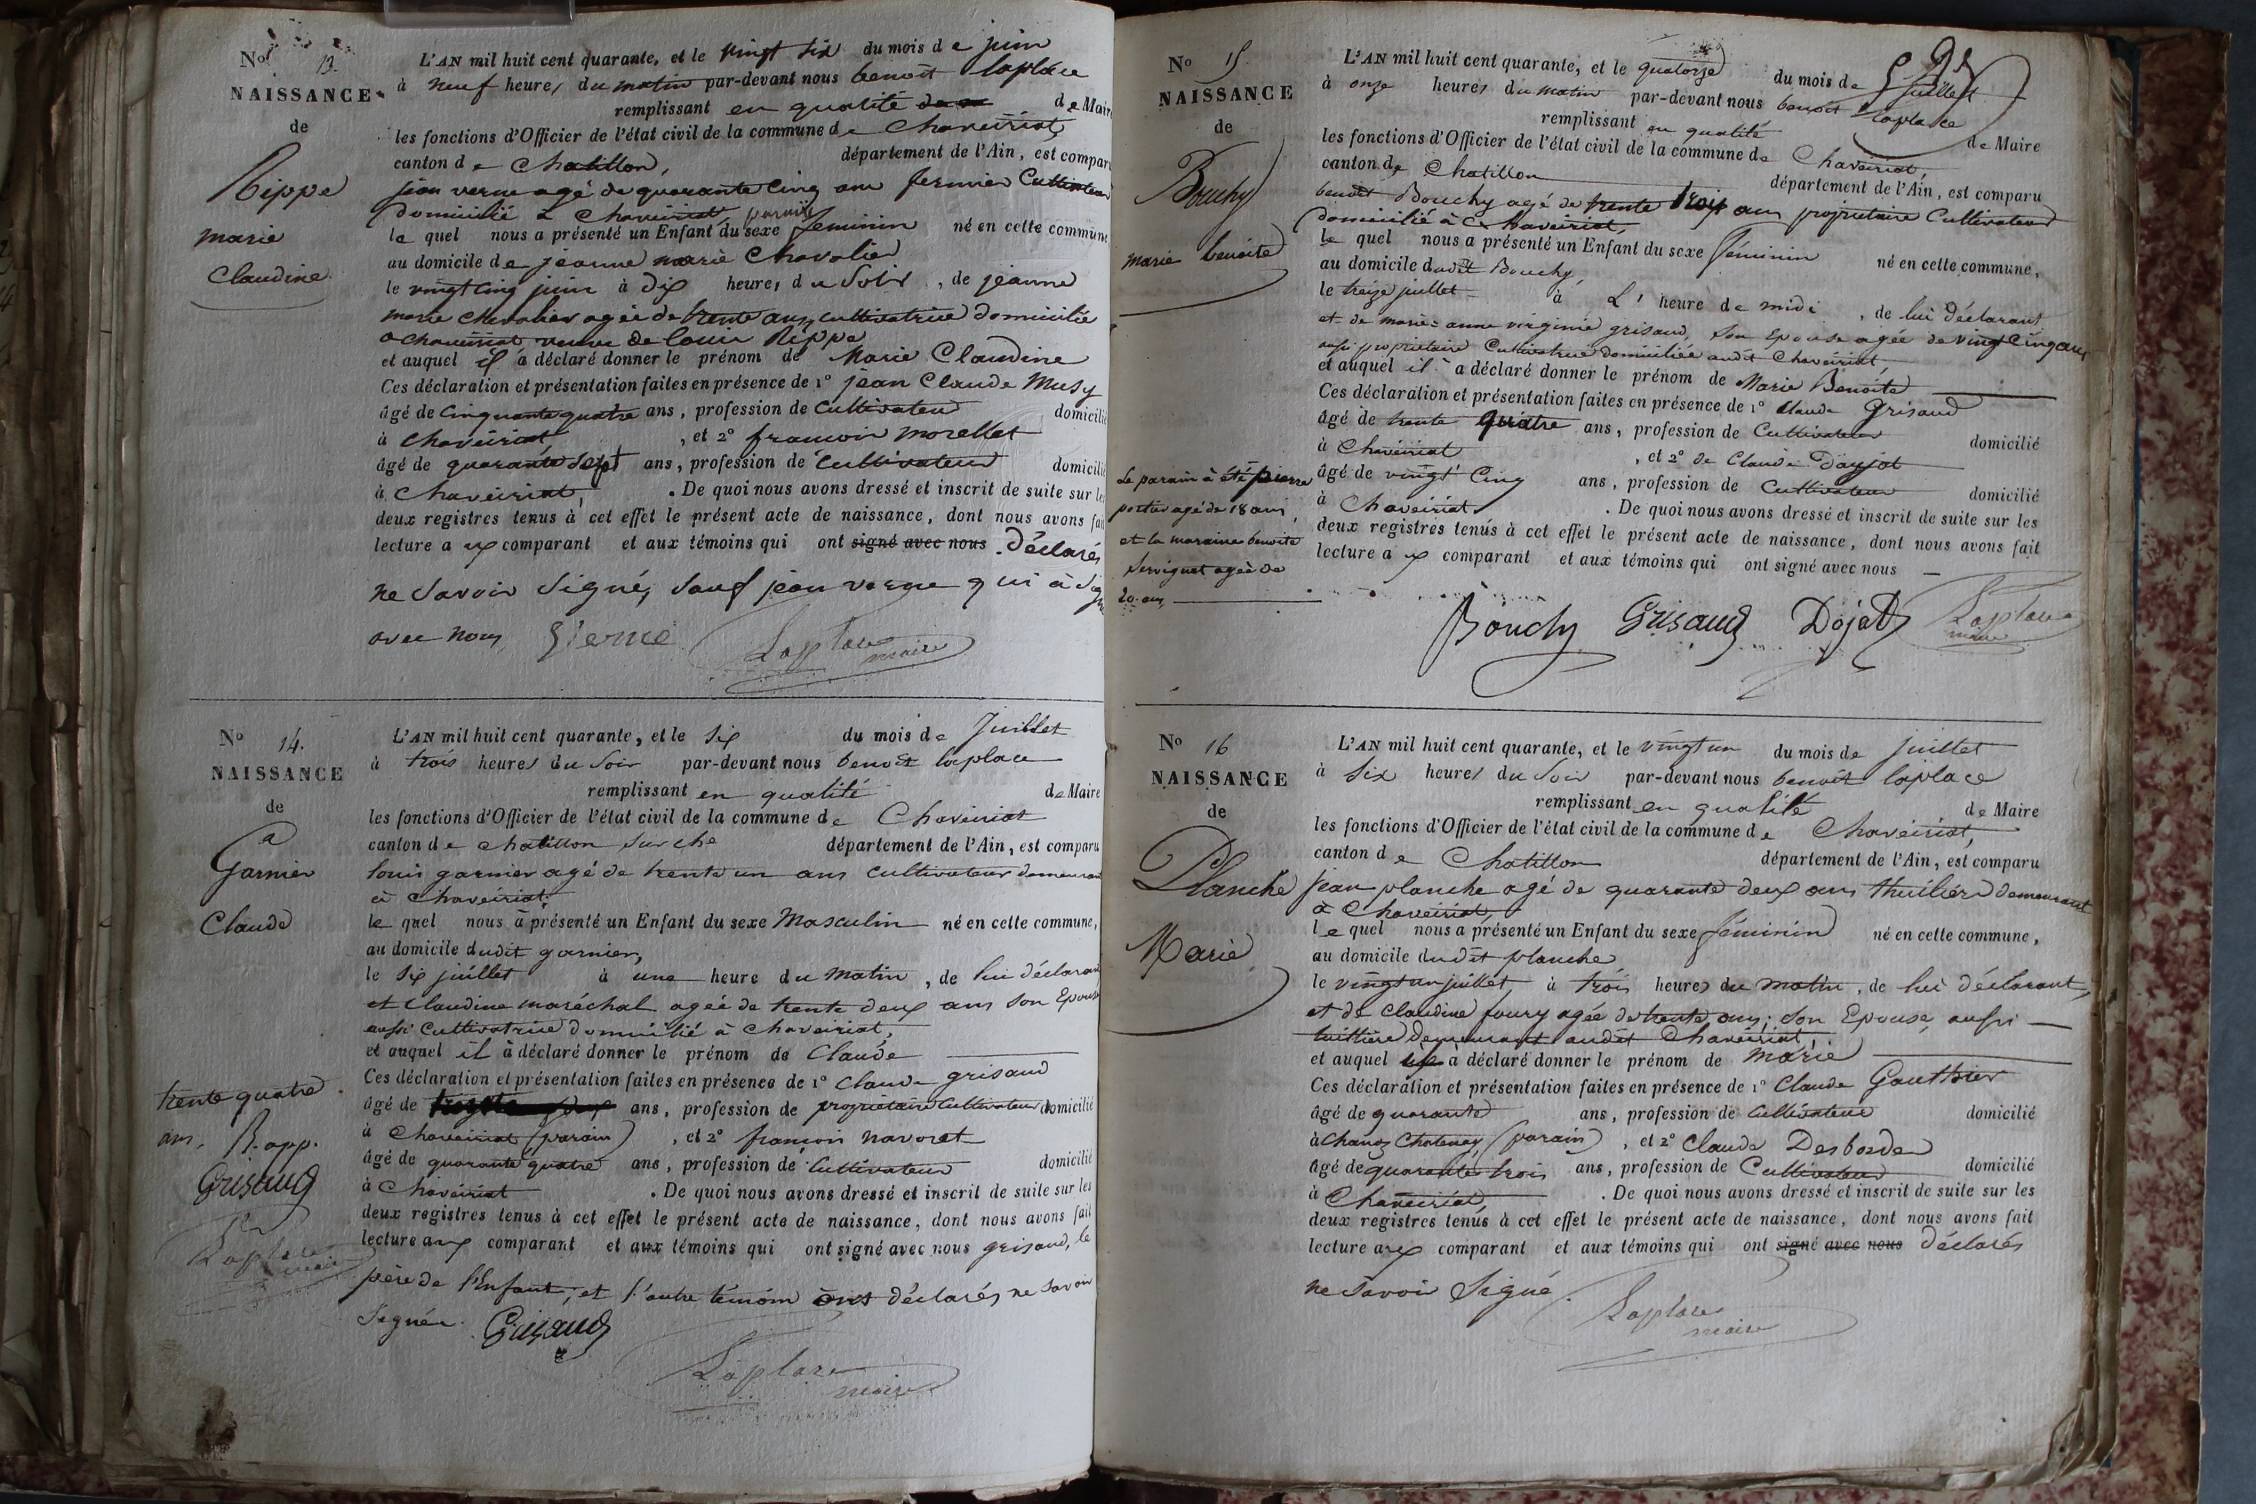 No 13.
NAISSANCE
de
Rippe
marie
Claudine
L'AN mil huit cent quarante, et le vingt six du mois de juin
à neuf heures du matin par-devant nous benoit laplace
remplissant en qualité de Maire
les fonctions d'Officier de l'état civil de la commune de Chaveiriat
canton de Chatillon, département de l'Ain, est comparu
jean verne agé de quarante cinq ans fermier Cultivateur
domicilié à Chaveiriat
le quel nous a présenté un Enfant du sexe feminin né en cette commune
au domicile de jeanne marie Chevalier
le vingt cinq juin à dix heures du Soir, de jeanne
marie Chevalier agée de trente ans, cultivatrice domicilié
a chaveiriat veuve de louis Rippe
et auquel il a déclaré donner le prénom de Marie Claudine
Ces déclaration et présentation faites en présence de 1° jean Claude Musy
âgé de Cinquante quatre ans, profession de Cultivateur domicilié
à Chaveiriat, et 2° francois morellet
âgé de quarante sept ans, profession de Cultivateur domicilié
à Chaveiriat, . De quoi nous avons dressé et inscrit de suite sur les
deux registres tenus à cet effet le présent acte de naissance, dont nous avons fait
lecture aux comparant et aux témoins qui ont signé avec nous. Déclarés
ne Savoir Signé, Sauf jean verne qui à Signé
avec nous, Verne Laplace maire
No 14.
NAISSANCE
de
Garnier
Claude
L'AN mil huit cent quarante, et le Six du mois de Juillet
à trois heures du Soir par-devant nous benoit laplace
remplissant en qualité de Maire
les fonctions d'Officier de l'état civil de la commune de Chaveiriat
canton de chatillon sur che département de l'Ain, est comparu
louis garnier agé de trente un ans cultivateur demeurant
à Chaveiriat.
le quel nous à présenté un Enfant du sexe Masculin né en cette commune,
au domicile dudit garnier,
le Six juillet à une heure du matin, de lui déclarant
et Claudine maréchal agée de trente deux ans Son Epouse
aussi Cultivatrice domicilié à Chaveiriat,
et auquel il à déclaré donner le prénom de Claude
Ces déclaration et présentation faites en présence de 1° Claude grisaud
âgé de ans, profession de proprietaire Cultivateur domicilié
à Chaveiriat (parain), et 2° francois navoret
âgé de quarante quatre ans, profession de Cultivateur domicilié
à Chaveiriat . De quoi nous avons dressé et inscrit de suite sur les
deux registres tenus à cet effet le présent acte de naissance, dont nous avons fait
lecture aux comparant et aux témoins qui ont signé avec nous grisaud, le
père de l'Enfant, et l'autre témoin ont déclarés ne Savoir
Signér. Grisaud
Laplace maire
trente quatre
ans, R. app.
Grisaud
Laplace
maire
No 15.
NAISSANCE
de
Bouchy
marie benoite
Le parain à été pierre
portier agé de 18 ans,
et la maraine benoite
Serviguet agée de
20 ans
L'AN mil huit cent quarante, et le quatorze du mois de juillet
à onze heures du matin par-devant nous benoit laplace
remplissant en qualité de Maire
les fonctions d'Officier de l'état civil de la commune de Chaveiriat,
canton de Chatillon département de l'Ain, est comparu
benoit Bouchy agé de trente trois ans proprietaire Cultivateur
domicilié à Chaveiriat,
le quel nous a présenté un Enfant du sexe féminin né en cette commune,
au domicile dudit Bouchy,
le treize juillet à L' heure de midi, de lui déclarant
et de marie-anne virginie grisaud, Son Epouse agée de vingt Cinq ans
aussi proprietaire Cultivatrice domiciliée audit Chaveiriat,
et auquel il a déclaré donner le prénom de Marie Benoite
Ces déclaration et présentation faites en présence de 1° Claude Grisaud
âgé de trente quatre ans, profession de Cultivateur domicilié
à Chaveiriat, et 2° de Claude Daujat
âgé de vingt Cinq ans, profession de Cultivateur domicilié
à Chaveiriat . De quoi nous avons dressé et inscrit de suite sur les
deux registres tenus à cet effet le présent acte de naissance, dont nous avons fait
lecture aux comparant et aux témoins qui ont signé avec nous
Bouchy Grisaud Dojat Laplace maire
No 16
NAISSANCE
de
Planche
Marie
L'AN mil huit cent quarante, et le vingt un du mois de juillet
à Six heures du Soir par-devant nous benoit laplace
remplissant en qualité de Maire
les fonctions d'Officier de l'état civil de la commune de Chaveiriat,
canton de Chatillon département de l'Ain, est comparu
jean planche agé de quarante deux ans thuiliére demeurant
à Chaveiriat,
le quel nous a présenté un Enfant du sexe féminin né en cette commune,
au domicile dudit planche
le vingt un juillet, à trois heures du matin, de lui déclarant,
et de Claudine foury agée de trente ans, Son Epouse, aussi
tuilliére demeurant audit Chaveiriat,
et auquel il à déclaré donner le prénom de Marie
Ces déclaration et présentation faites en présence de 1° Claude Gauthier
âgé de quarante ans, profession de Cultivateur domicilié
à Chanoz Chatenay (parain), et 2° Claude Desbordes
âgé de quarante trois ans, profession de Cultivateur domicilié
à Chaveiriat, . De quoi nous avons dressé et inscrit de suite sur les
deux registres tenus à cet effet le présent acte de naissance, dont nous avons fait
lecture aux comparant et aux témoins qui ont signé avec nous déclarés
ne Savoir Signé.
Laplace
maire